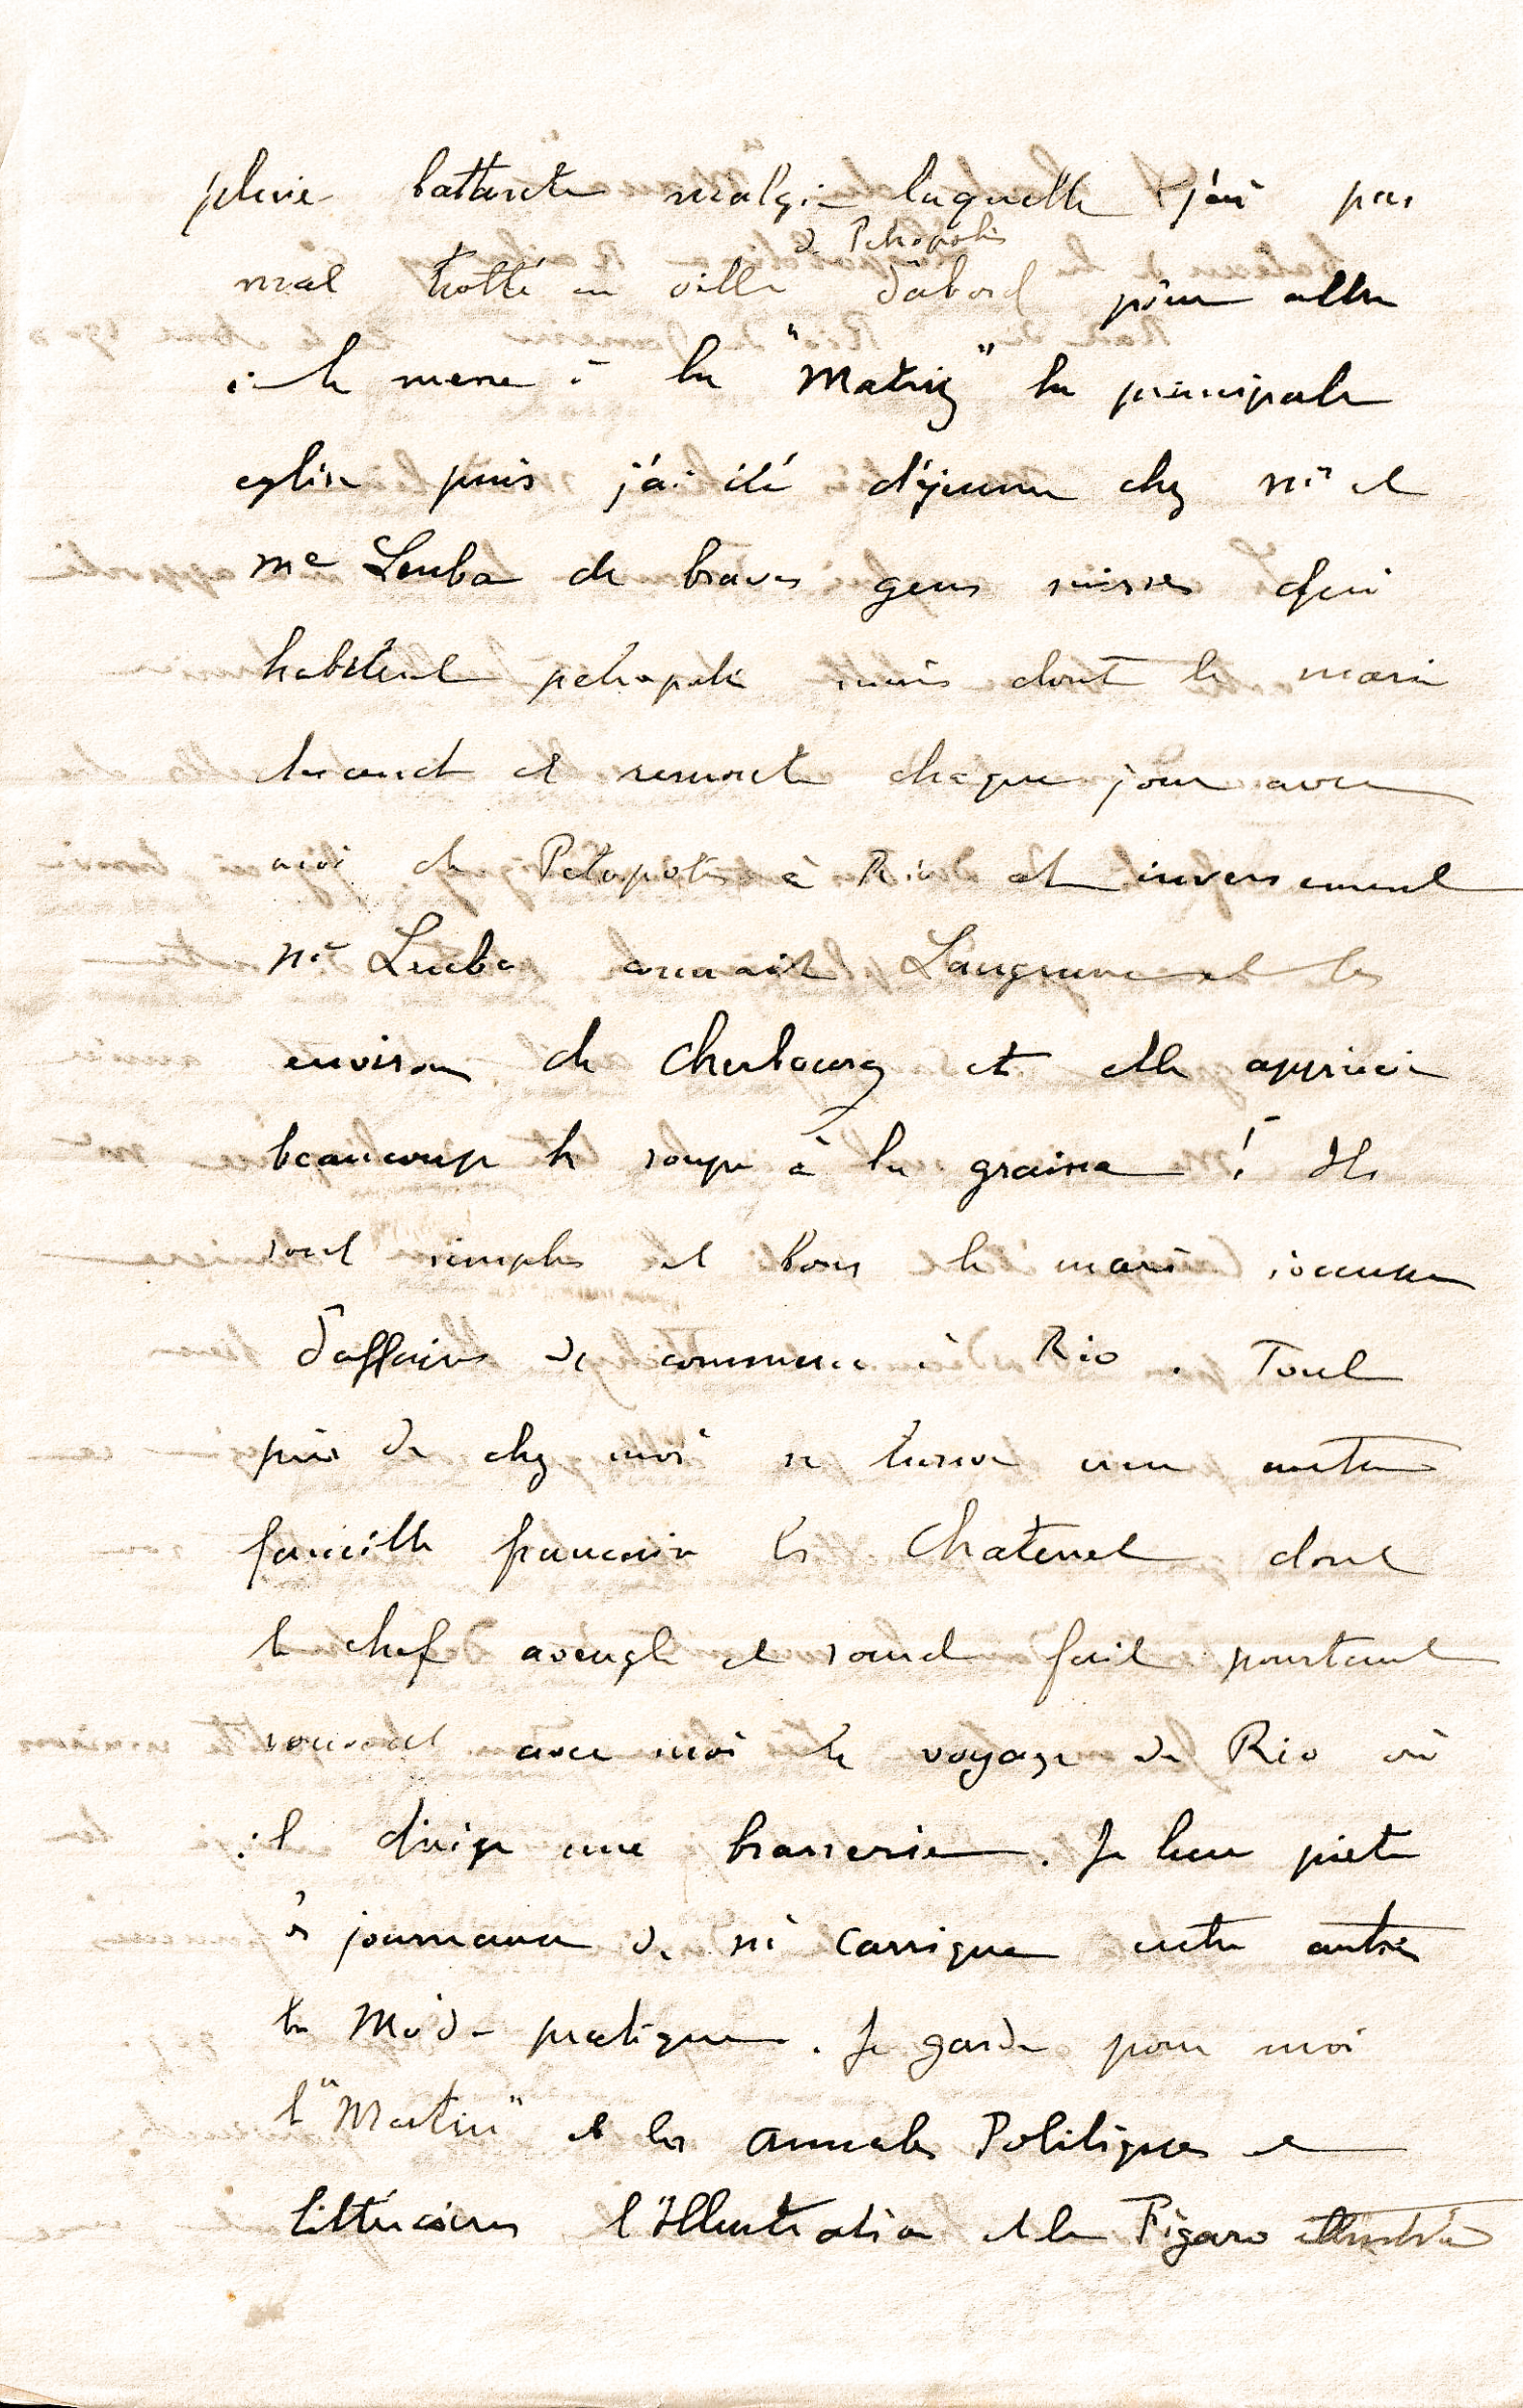 pluie battante malgré laquelle j'ai pas
de Petropolis
mal trotté en ville d'abord pour aller
à la messe à la "Matriz" la principale
eglise puis j'ai été déjeuner chez Mr et
Me Leuba de braves gens suisses qui
habitent petropolis mais dont le mari
descend et remonte chaque jour avec
moi de Petropolis à Rio et inversement
Me Leuba connait Langrune et les
environs de Cherbourg et elle apprécie
beaucoup la soupe à la graisse ! Ils
sont simples et bons le mari s'occupe
d'affaires de commerce à Rio. Tout
près de chez moi se trouve une autre
famille francaise les Chatenet dont
le chef aveugle et sourd fait pourtant
souvent avec moi le voyage de Rio où
il dirige une brasserie. Je leur prete
les journaux de Mr Carrique entre autres
la Mode pratique. Je garde pour moi
le "Matin" et les Annales Politiques et
littéraires l'Illustration et le Figaro illustré